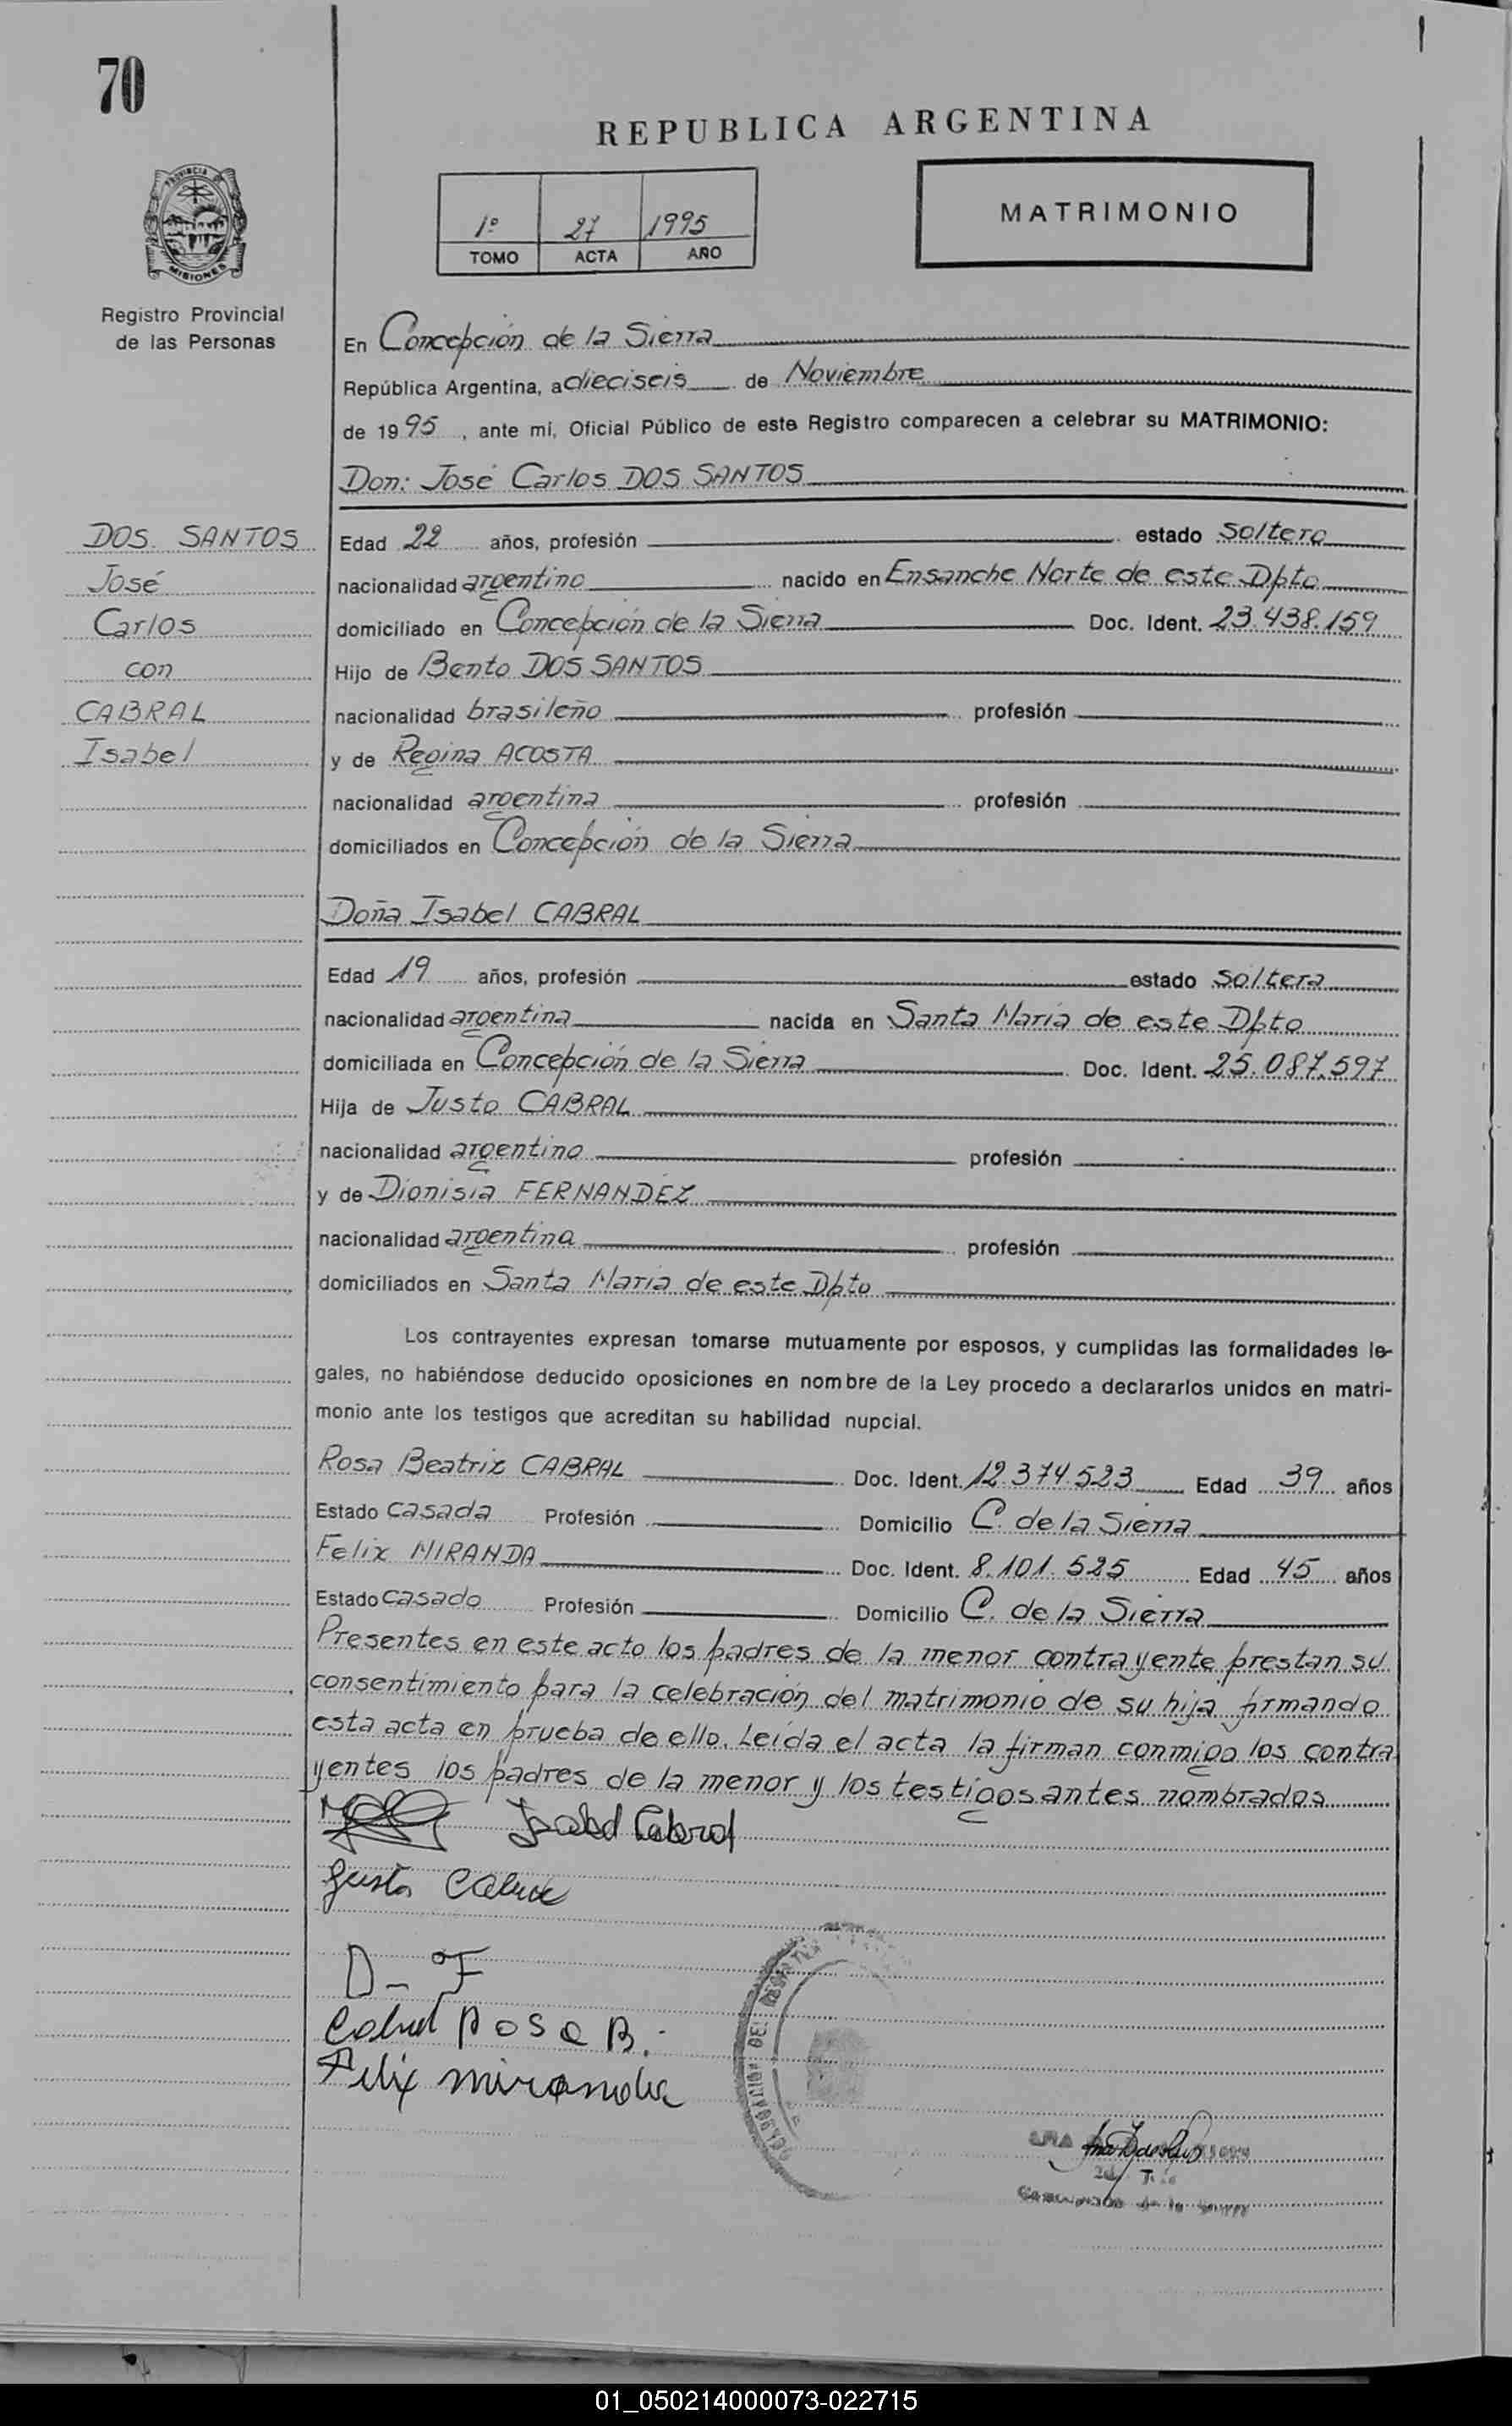 70
REPUBLICA ARGENTINA
PROVINCIA DE
MISIONES
Registro Provincial
de las Personas
1º 27 1995
TOMO ACTA AÑO
MATRIMONIO
En Concepción de la Sierra
República Argentina, a dieciseis de Noviembre
de 1995, ante mí, Oficial Público de este Registro comparecen a celebrar su MATRIMONIO:
Don: José Carlos DOS SANTOS
DOS SANTOS
José
Carlos
con
CABRAL
Isabel
Edad 22 años, profesión estado soltero
nacionalidad argentino nacido en Ensanche Norte de este Dpto
domiciliado en Concepción de la Sierra Doc. Ident. 23.438.159
Hijo de Bento DOS SANTOS
nacionalidad brasileño profesión
y de Regina ACOSTA
nacionalidad argentina profesión
domiciliados en Concepción de la Sierra
Doña Isabel CABRAL
Edad 19 años, profesión estado soltera
nacionalidad argentina nacida en Santa María de este Dpto
domiciliada en Concepción de la Sierra Doc. Ident. 25.087.597
Hija de Justo CABRAL
nacionalidad argentino profesión
y de Dionisia FERNANDEZ
nacionalidad argentina profesión
domiciliados en Santa María de este Dpto
Los contrayentes expresan tomarse mutuamente por esposos, y cumplidas las formalidades le-
gales, no habiéndose deducido oposiciones en nombre de la Ley procedo a declararlos unidos en matri-
monio ante los testigos que acreditan su habilidad nupcial.
Rosa Beatriz CABRAL Doc. Ident. 12.374.523 Edad 39 años
Estado casada Profesión Domicilio C. de la Sierra
Felix MIRANDA Doc. Ident. 8.101.525 Edad 45 años
Estado casado Profesión Domicilio C. de la Sierra
Presentes en este acto los padres de la menor contrayente prestan su
consentimiento para la celebración del matrimonio de su hija firmando
esta acta en prueba de ello. Leída el acta la firman conmigo los contra
yentes los padres de la menor y los testigos antes nombrados
Isabel Cabral
Justo Cabral
D- F
Cabral Rosa B.
Felix miranda
01_050214000073-022715